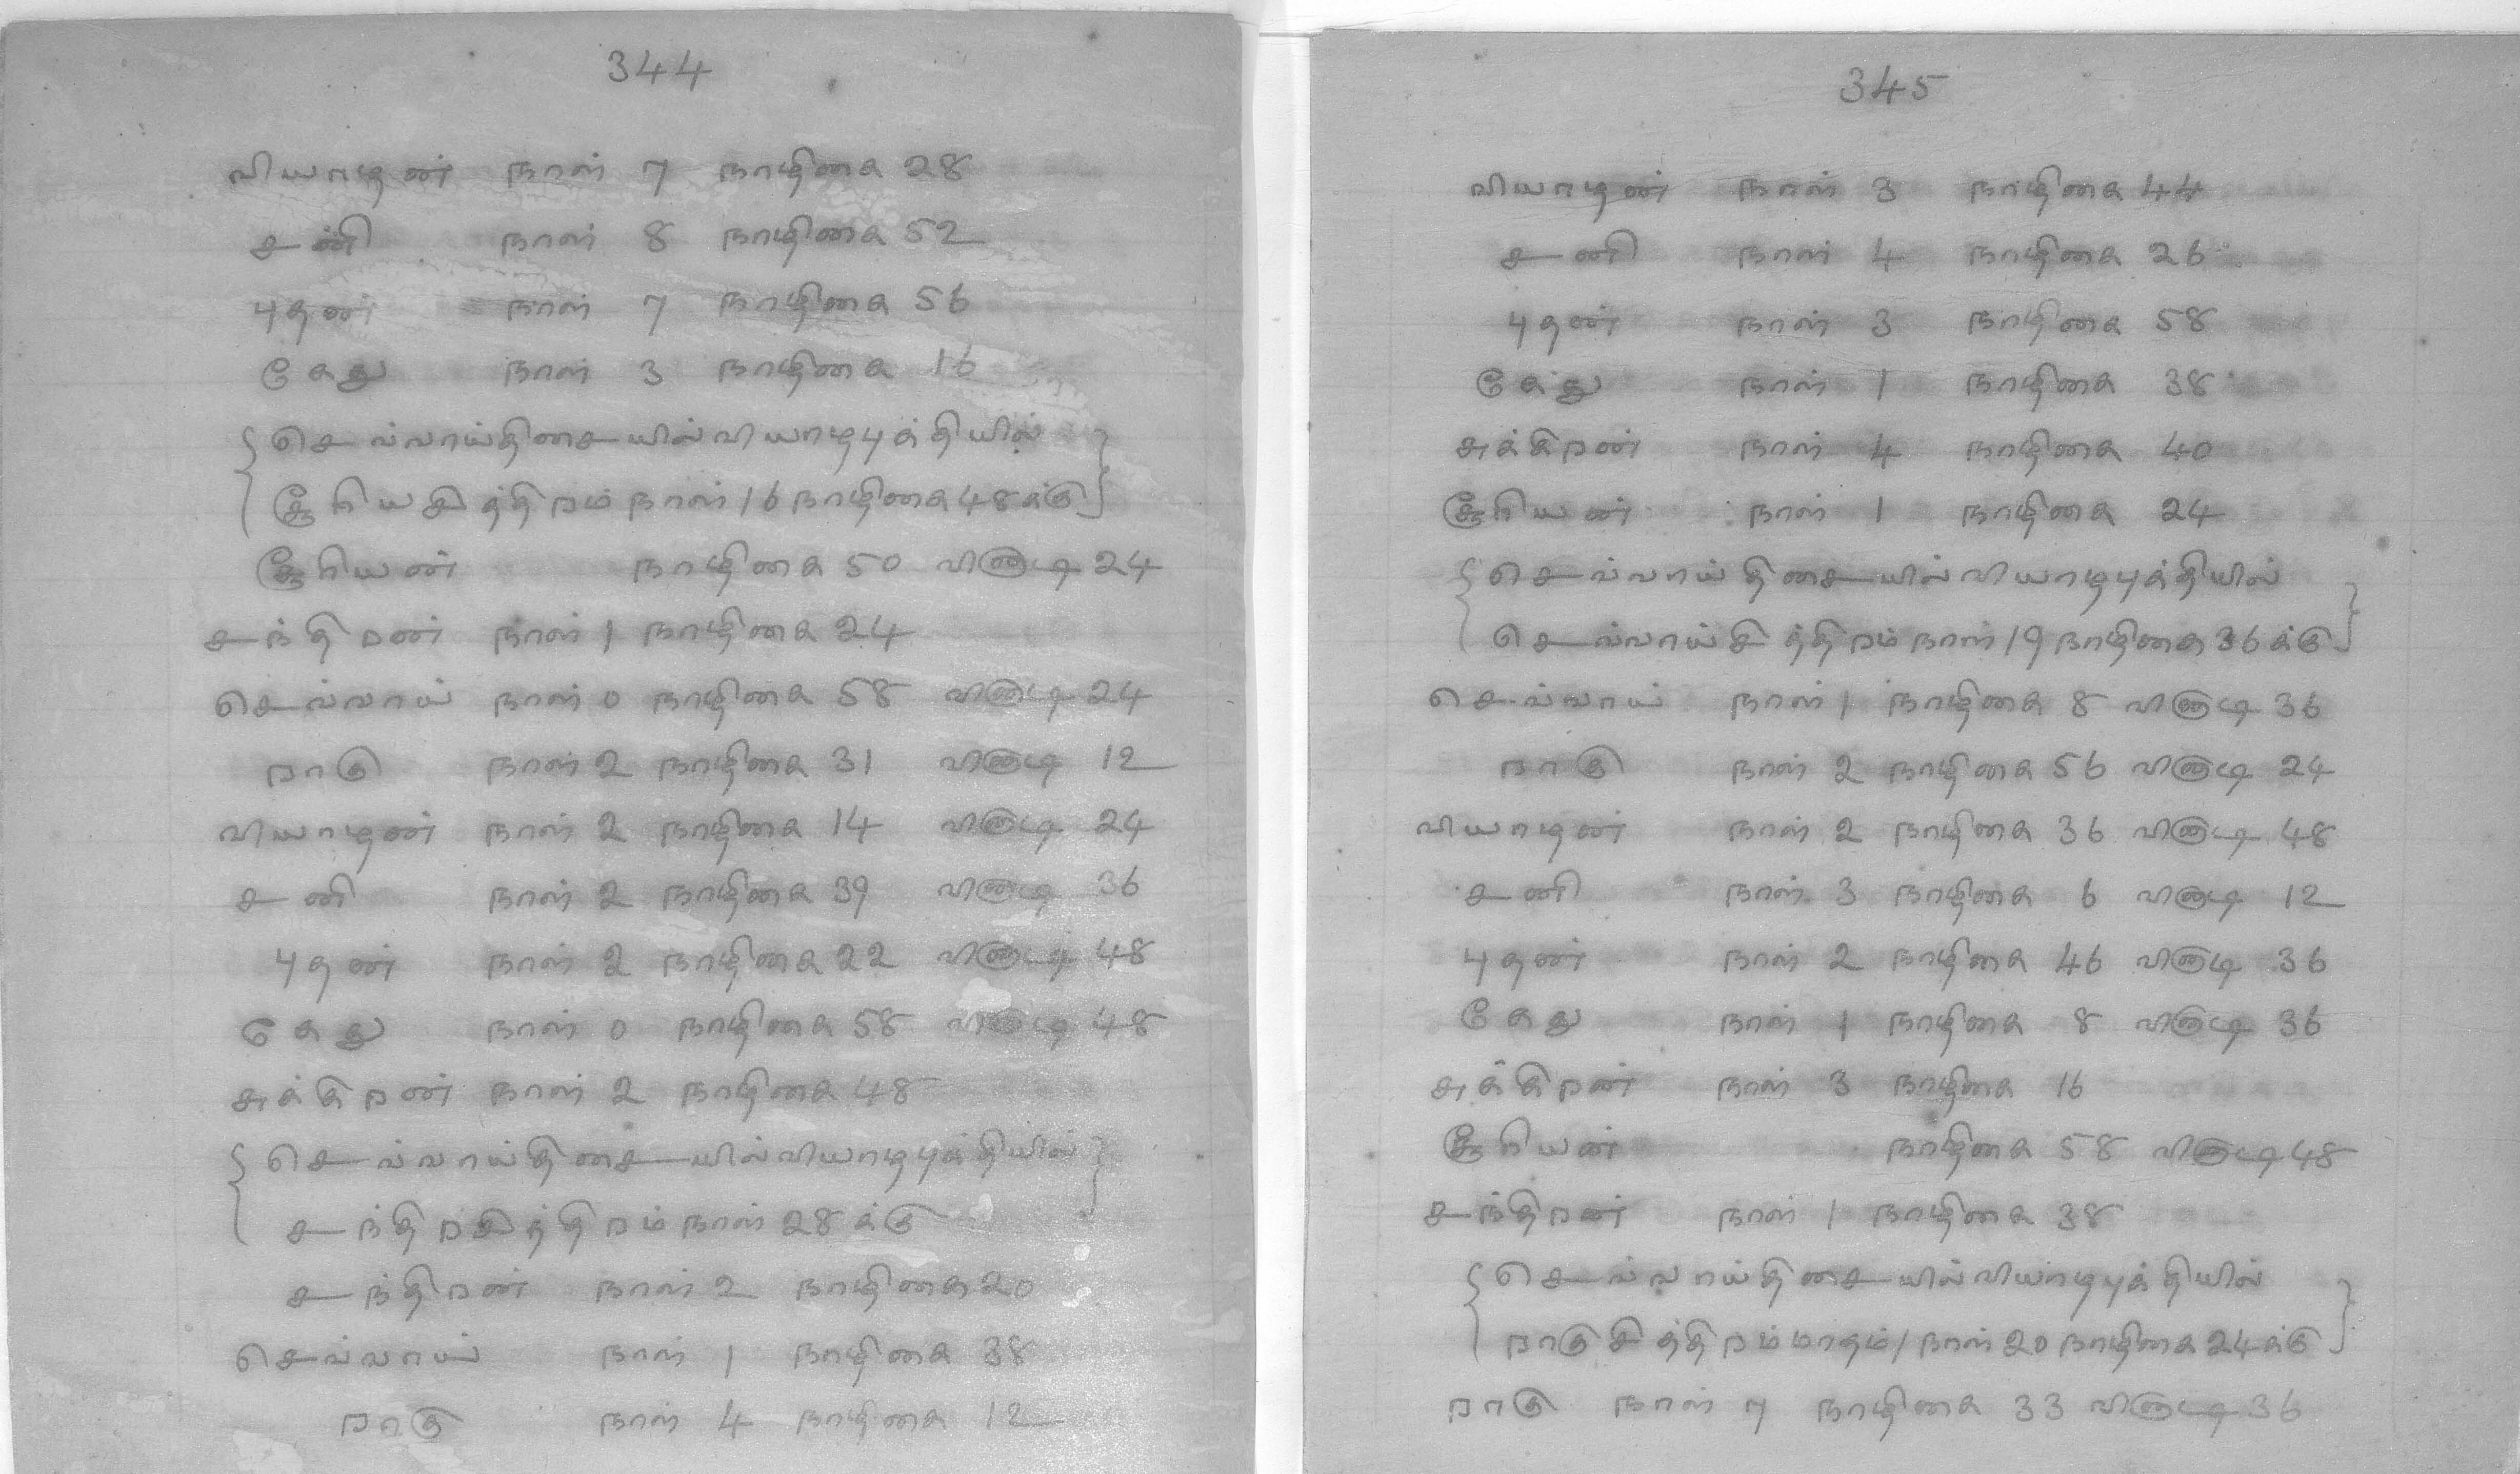 344
வியாழன் நாள் 7 நாழிகை 28
சனி நாள் 8 நாழிகை 52
புதன் நாள் 7 நாழிகை 56
கேது நாள் 3 நாழிகை 16
{செவ்வாய்திசையில்வியாழபுக்தியில்
சூரியசித்திரம் நாள் 16 நாழிகை 48க்கு}
சூரியன் நாழிகை 50 விநாடி 24
சந்திரன் நாள் 1 நாழிகை 24
செவ்வாய் நாள் 0 நாழிகை 58 விநாடி 24
ராகு நாள் 2 நாழிகை 31 விநாடி 12
வியாழன் நாள் 2 நாழிகை 14 விநாடி 24
சனி நாள் 2 நாழிகை 39 விநாடி 36
புதன் நாள் 2 நாழிகை 22 விநாடி 48
கேது நாள் 0 நாழிகை 58 விநாடி 48
சுக்கிரன் நாள் 2 நாழிகை 48
{செவ்வாய்திசையில்வியாழபுக்தியில்
சந்திரசித்திரம் நாள் 28 க்கு}
சந்திரன் நாள் 2 நாழிகை 20
செவ்வாய் நாள் 1 நாழிகை 38
ராகு நாள் 4 நாழிகை 12
345
வியாழன் நாள் 3 நாழிகை 44
சனி நாள் 4 நாழிகை 26
புதன் நாள் 3 நாழிகை 58
கேது நாள் 1 நாழிகை 38
சுக்கிரன் நாள் 4 நாழிகை 40
சூரியன் நாள் 1 நாழிகை 24
{செவ்வாய்திசையில்வியாழபுக்தியில்
செவ்வாய்சித்திரம் நாள் 19 நாழிகை 36 க்கு}
செவ்வாய் நாள் 1 நாழிகை 8 விநாடி 36
ராகு நாள் 2 நாழிகை 56 விநாடி 24
வியாழன் நாள் 2 நாழிகை 36 விநாடி 48
சனி நாள் 3 நாழிகை 6 விநாடி 12
புதன் நாள் 2 நாழிகை 46 விநாடி 36
கேது நாள் 1 நாழிகை 8 விநாடி 36
சுக்கிரன் நாள் 3 நாழிகை 16
சூரியன் நாழிகை 58 விநாடி 48
சந்திரன் நாள் 1 நாழிகை 38
{செவ்வாய்திசையில்வியாழபுக்தியில்
ராகுசித்திரம்மாதம் 1 நாள் 20 நாழிகை 24க்கு}
ராகு நாள் 7 நாழிகை 33 விநாடி 36